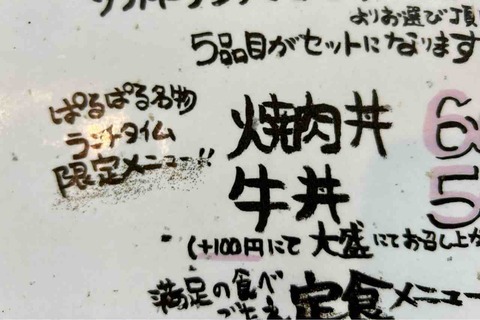 よりお選び頂
5品目がセットになります
ぱるぱる名物
ランチタイム
限定メニュー!!
焼肉丼 6
牛丼 5
(+100円にて 大盛にてお召し上が
満足の食べ
ごたえ 定食メニュー